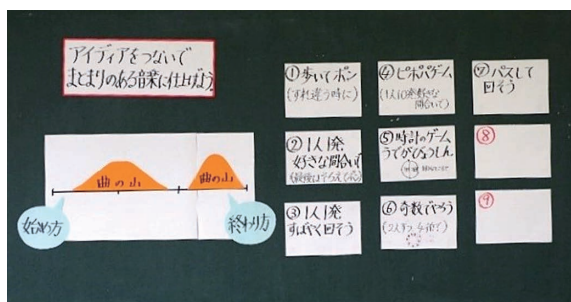 アイディアをつないで
まとまりのある音楽に仕上げよう。
曲の山
曲の山
始め方
終わり方
①歩いてポン
(すれ違う時に)
②1人1発
好きな間合いで
③1人1発
すばやく回そう
④ピポパゲーム
⑤時計のゲーム
うでがひょうしん
⑥奇数でやろう
⑦パスして
回そう
⑧
⑨